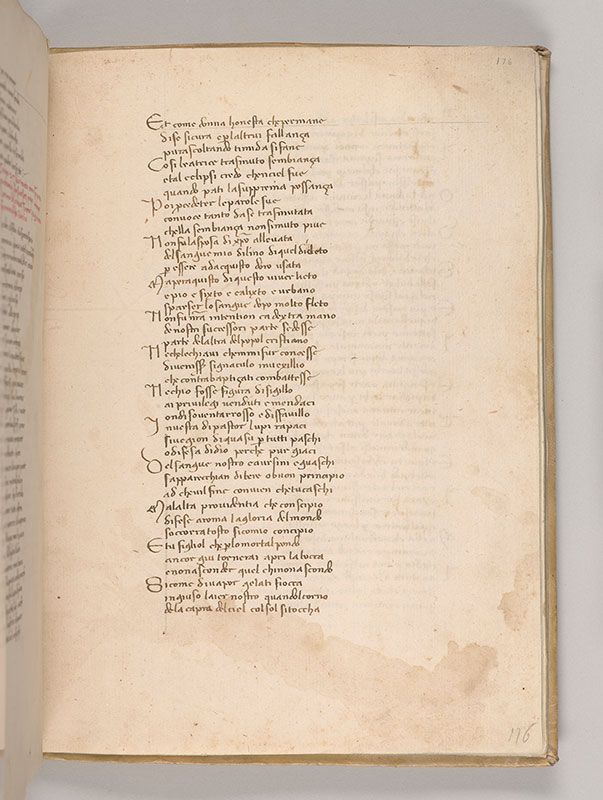 176
Et come donna honesta che permane
di se sicura e p laltrui fallança
pur ascoltando timida si fane
Cosi beatrice trasmuto sembiança
e tal eclipsi credo chenciel fue
quando pati la supprema possança
Poi procedeter le parole sue
con voce tanto da se trasmutata
che lla sembiança non si muto piue
Non fu la sposa di xpo allevata
del sangue mio di lino di quel di cleto
p essere ad acquisto doro usata
Ma per aquisto di questo viver lieto
e pio e sixto e calixto e urbano
sparser lo sangue dopo molto fleto
Non fu nra intention ca dextra mano
de nostri successori parte sedesse
parte dela altra del popol cristiano
Ne che le chiavi che mi fur concesse
divenisser signaculo in vexillio
che contra baptiçati combattesse
Ne chio fosse figura di sigillo
ai privilegi venduti e mendaci
ondi soventarrosso e disfavillo
In vesta di pastor lupi rapaci
si vegion di qua su p tutti paschi
o difesa didio perche pur giaci
Del sangue nostro caursini e guaschi
sapparecchian di bere o buon principio
ad che vil fine convien che tu caschi
Ma lalta providentia che con scipio
difese a roma la gloria del mondo
soccorra tosto sicomio concipio
E tu figliol che plo mortal pondo
ancor giu tornerai apri la bocca
e non asconder quel chi non ascondo
Sicome di vapor gelati fiocca
in giuso laier nostro quandel corno
de la capra del ciel col sol si toccha
116